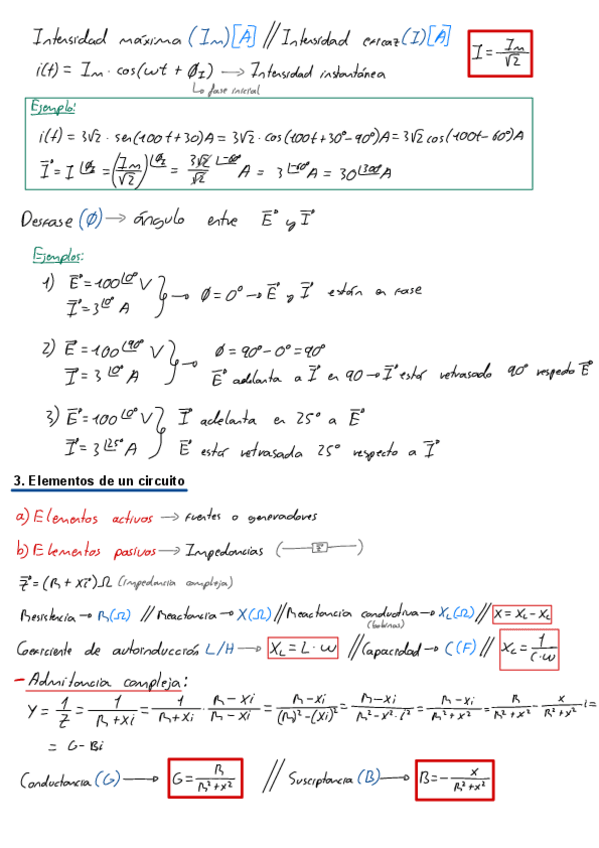 Intensidad máxima (Im)[A] // Intensidad eficaz (I)[A] I = Im/√2
i(t) = Im · cos(wt + ØI) → Intensidad instantánea
↳ fase inicial
Ejemplo:
i(t) = 3√2 · sen(100t+30)A = 3√2 · cos(100t+30°-90°)A = 3√2 cos(100t-60°)A
I⃗ = I∠ØI = (Im/√2)∠ØI = 3√2/√2 ∠-60° A = 3∠-60° A = 30∠300° A
Desfase (Ø) → ángulo entre E⃗ y I⃗
Ejemplos:
1) E⃗ = 100∠0° V
I⃗ = 3∠0° A → Ø = 0° → E⃗ y I⃗ están en fase
2) E⃗ = 100∠90° V → Ø = 90° - 0° = 90°
I⃗ = 3∠0° A E⃗ adelanta a I⃗ en 90 → I⃗ estar retrasado 90° respecto E⃗
3) E⃗ = 100∠0° V I⃗ adelanta en 25° a E⃗
I⃗ = 3∠25° A E⃗ estar retrasada 25° respecto a I⃗
3. Elementos de un circuito
a) Elementos activos → fuentes o generadores
b) Elementos pasivos → Impedancias ( )
Z⃗ = (R + Xi)Ω (impedancia compleja)
Resistencia → R(Ω) // Reactancia → X(Ω) // Reactancia conductiva → XL(Ω) // X = XL - XL
(bobinas)
Coeficiente de autoinducción L/H → XL = L · w // Capacidad → C(F) // XL = 1/C·w
- Admitancia compleja:
Y = 1/Z = 1/R+Xi = 1/R+Xi · R-Xi/R-Xi = R-Xi/(R)²-(Xi)² = R-Xi/R²-X²·i² = R-Xi/R²+X² = R/R²+X² - X/R²+X² i =
= G-Bi
Conductancia (G) → G = R/R²+X² // Susceptancia (B) → B = - X/R²+X²